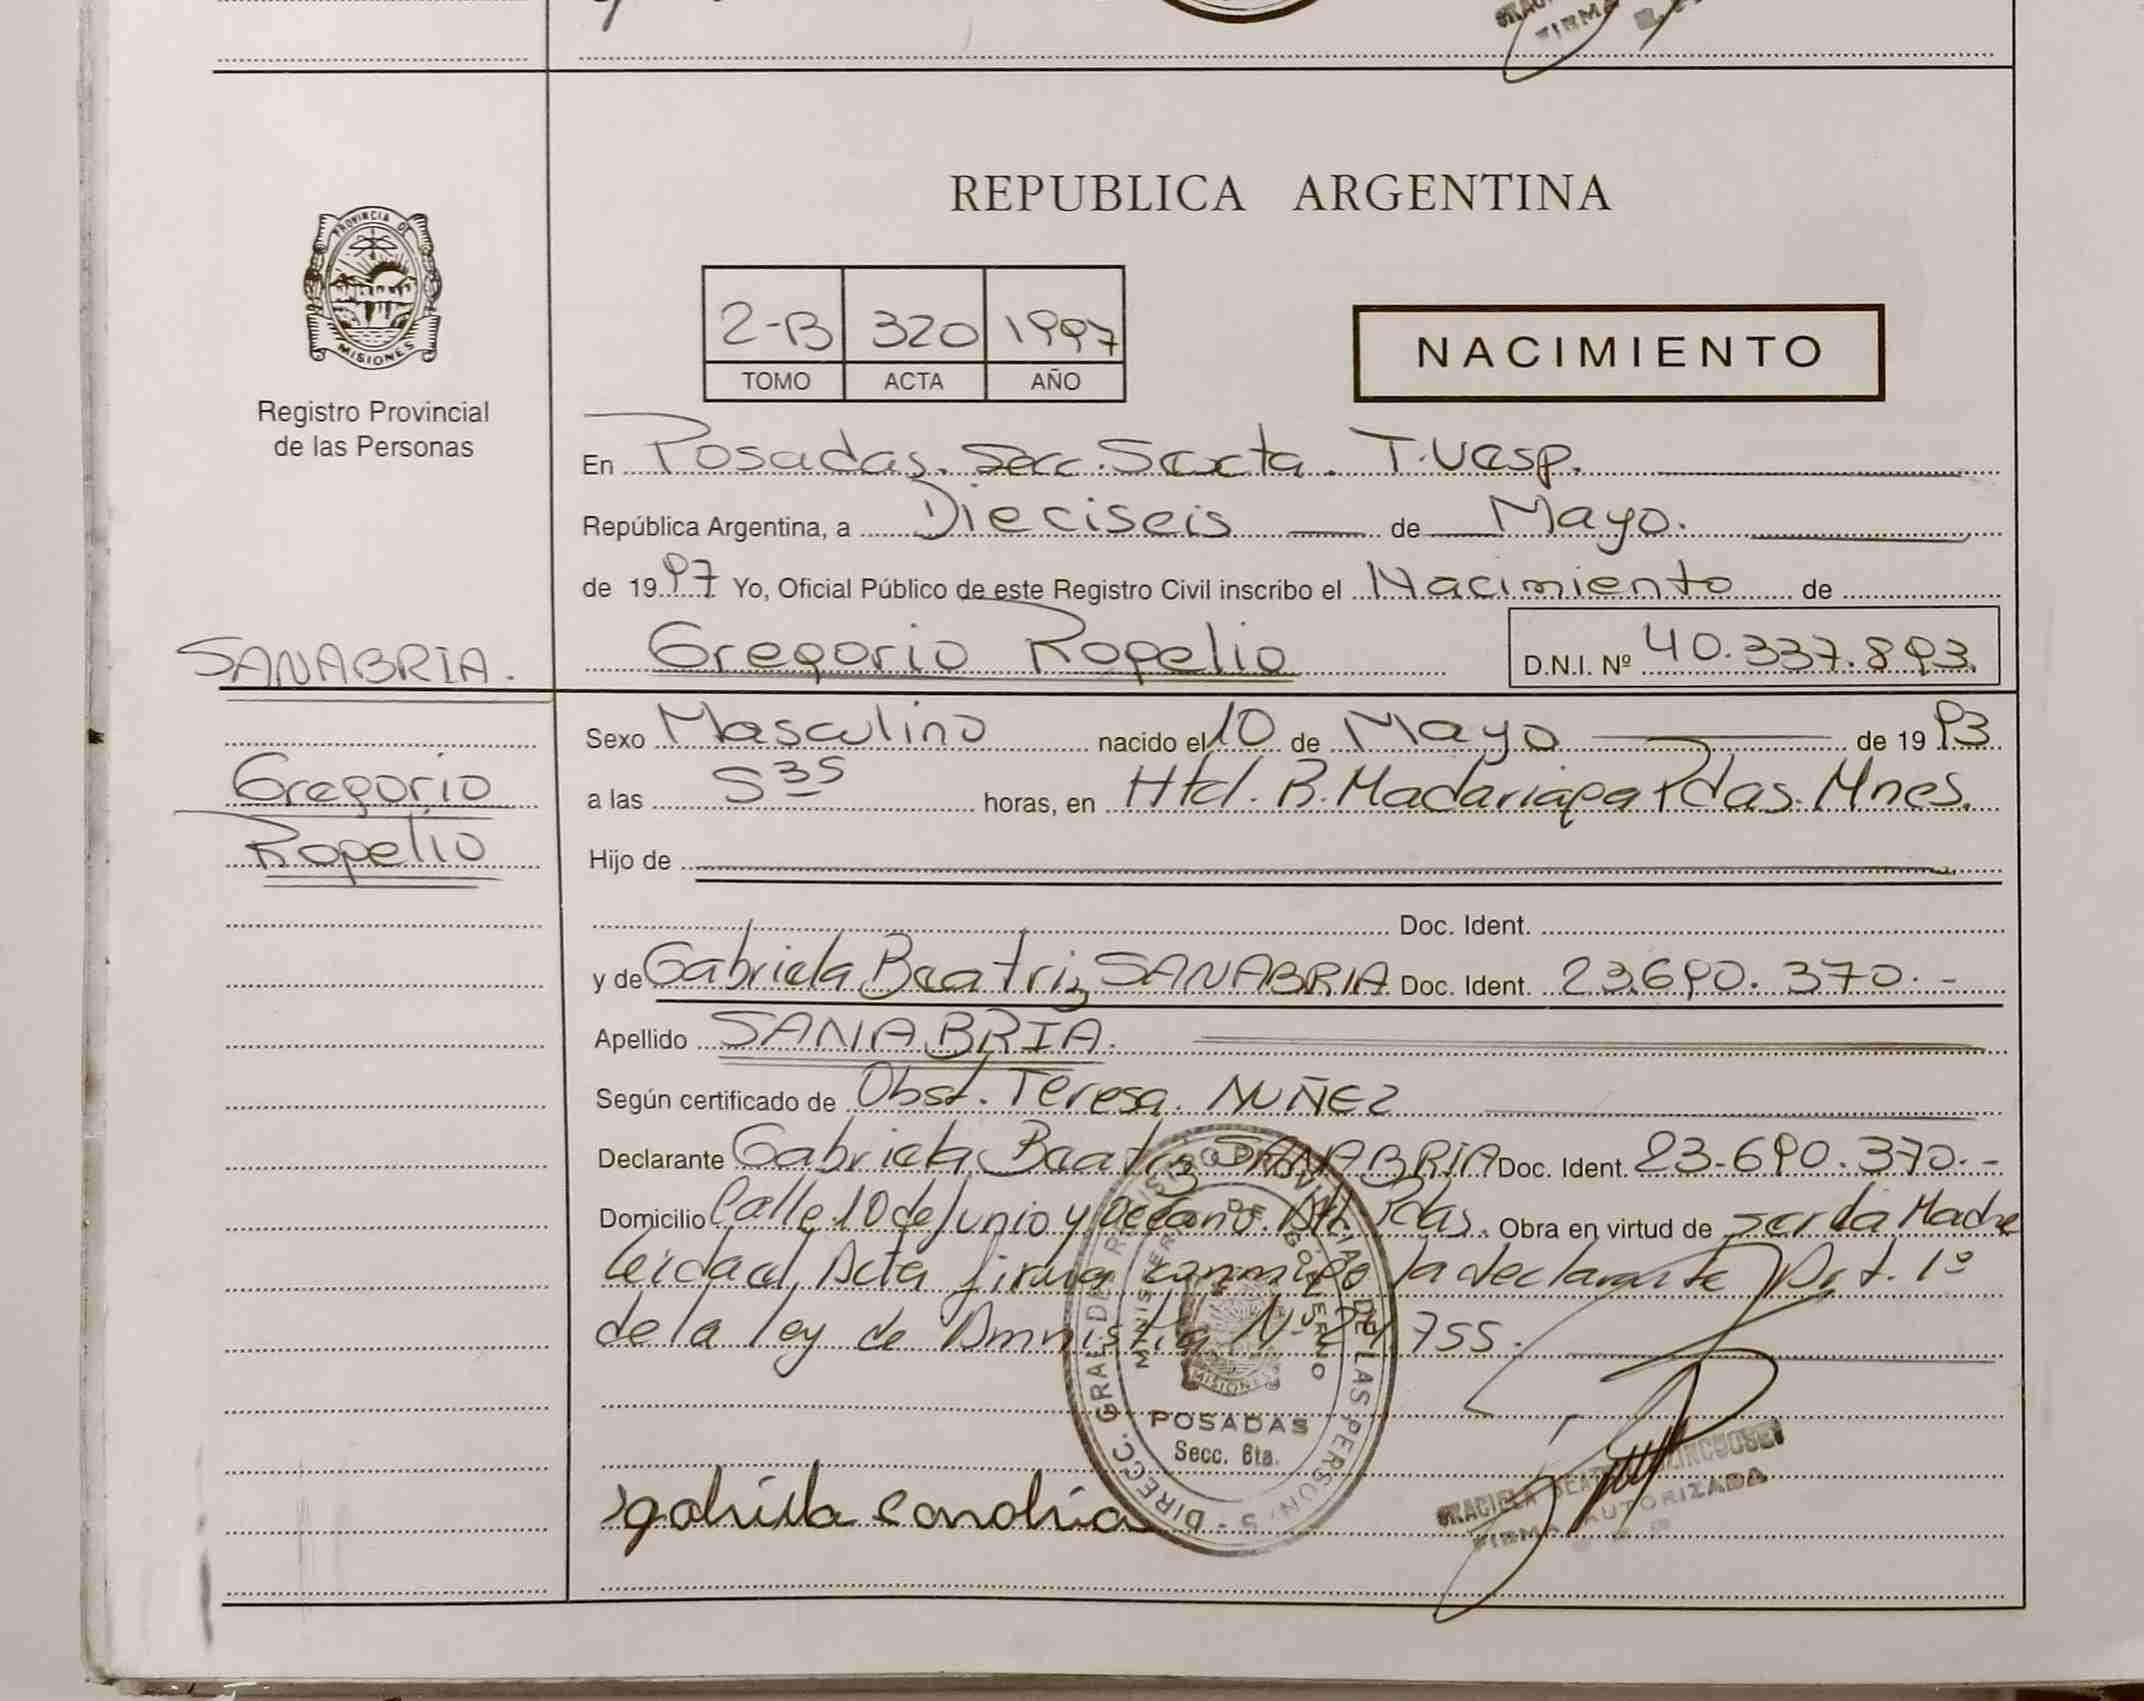 REPUBLICA ARGENTINA
PROVINCIA DE
MISIONES
Registro Provincial
de las Personas
2-B 320 1997
TOMO ACTA AÑO
NACIMIENTO
En Posadas. Secc. Sexta. T. Vesp.
República Argentina, a Dieciseis de Mayo.
de 1997 Yo, Oficial Público de este Registro Civil inscribo el Nacimiento de
Gregorio Rogelio D.N.I. Nº 40.337.893.
SANABRIA.
Gregorio
Rogelio
Sexo Masculino nacido el 10 de Mayo de 1993
a las 5 35 horas, en Htal. R. Madariaga Pdas. Mnes.
Hijo de
Doc. Ident.
y de Gabriela Beatriz SANABRIA Doc. Ident. 23.690.370.-
Apellido SANABRIA.
Según certificado de Obst. Teresa. NUÑEZ
Declarante Gabriela Beatriz SANABRIA Doc. Ident. 23.690.370.-
Domicilio Calle 10 de Junio y Pdas. Obra en virtud de ser la Madre
leída el Acta firma conmigo la declarante Art. 1º
de la ley de Amnistia Nº 755.
DIRECC. GRAL. DE REGISTRO PROVINCIAL DE LAS PERSONAS
MINISTERIO DE GOBIERNO
MISIONES
POSADAS
Secc. 6ta.
gabriela sanabria
GRACIELA
FIRMA AUTORIZADA